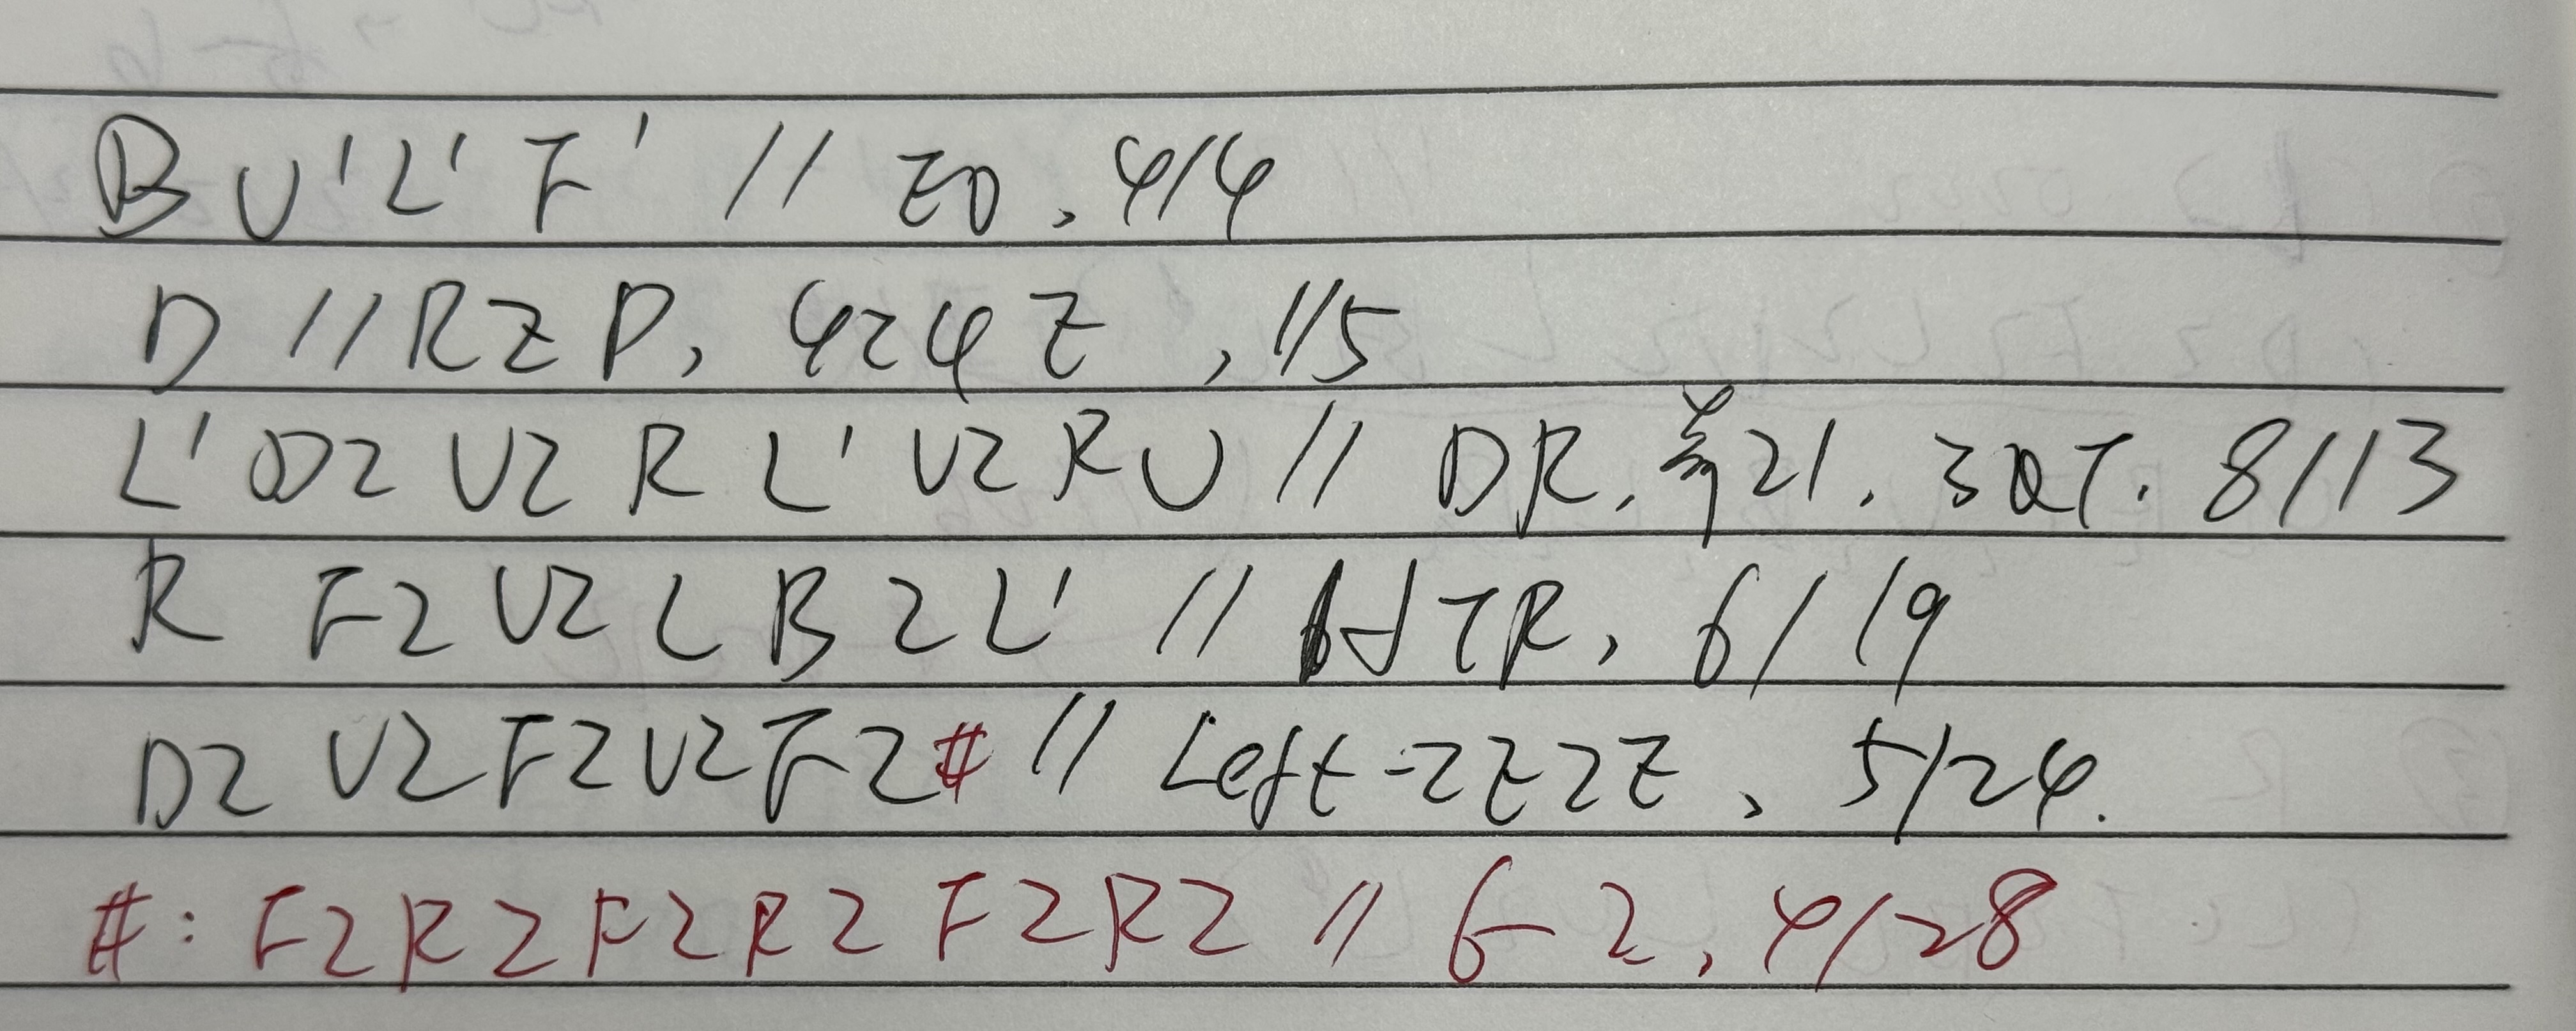 B U' L' F' // EO, 4/4
D // RZP, 4c4e, 1/5
L' D2 U2 R L' U2 R U // DR, 差21, 3QT, 8/13
R F2 U2 L B2 L' // HTR, 6/19
D2 U2 F2 U2 F2 # // Left-2e2e, 5/24.
#: F2 R2 F2 R2 F2 R2 // 6-2, 4/28